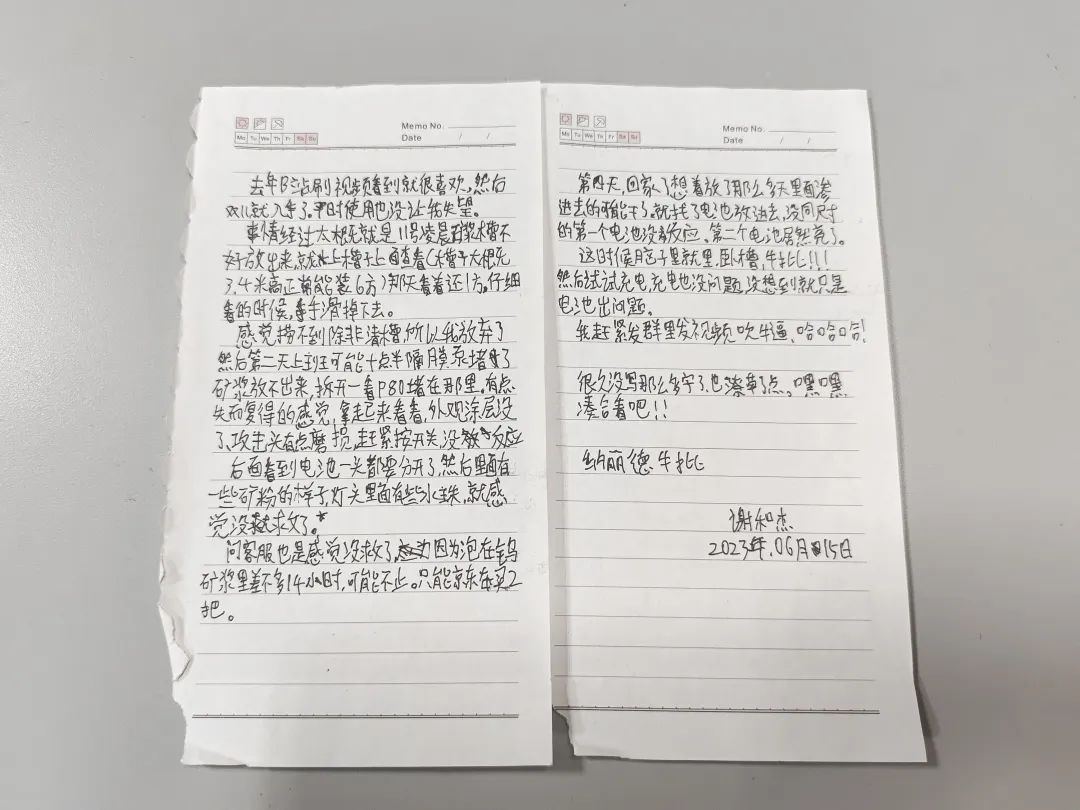 Mo Tu We Th Fr Sa Su
Memo No.
Date / /
去年B站刷视频看到就很喜欢,然后
双11就入手了。平时使用也没让我失望。
事情经过大概就是11号凌晨矿浆槽不
好放出来,就爬上槽子上面查看(槽子大概
3.4米高正常能装6方)那天看着还1方。仔细
看的时候,手滑掉下去。
感觉捞不到除非清槽,所以我放弃了
然后第二天上班可能十点半隔膜泵堵了
矿浆放不出来,拆开一看P80堵在那里。有点
失而复得的感觉,拿起来看看,外观涂层没
了,攻击头有点磨损,赶紧按开关,没反应
后面看到电池一头都要分开了,然后里面有
一些矿粉的样子,灯头里面有些小珠,就感
觉没救了。
问客服也是感觉没救了,因为泡在钨
矿浆里差不多14小时,可能不止。只能京东在买2
把。
Mo Tu We Th Fr Sa Su
Memo No.
Date / /
第四天,回家了想着放了那么多天里面渗
进去的可能干了。就找了电池放进去,没同尺寸
的第一个电池没反应、第二个电池居然亮了。
这时候脑子里就是,卧槽,牛批!!!
然后试试充电,充电也没问题,没想到就只是
电池出问题。
我赶紧发群里发视频吹牛逼,哈哈哈!
很久没写那么多字了,也潦草了点。嘿嘿
凑合看吧!!
纳丽德牛批
谢和杰
2023年.06月15日